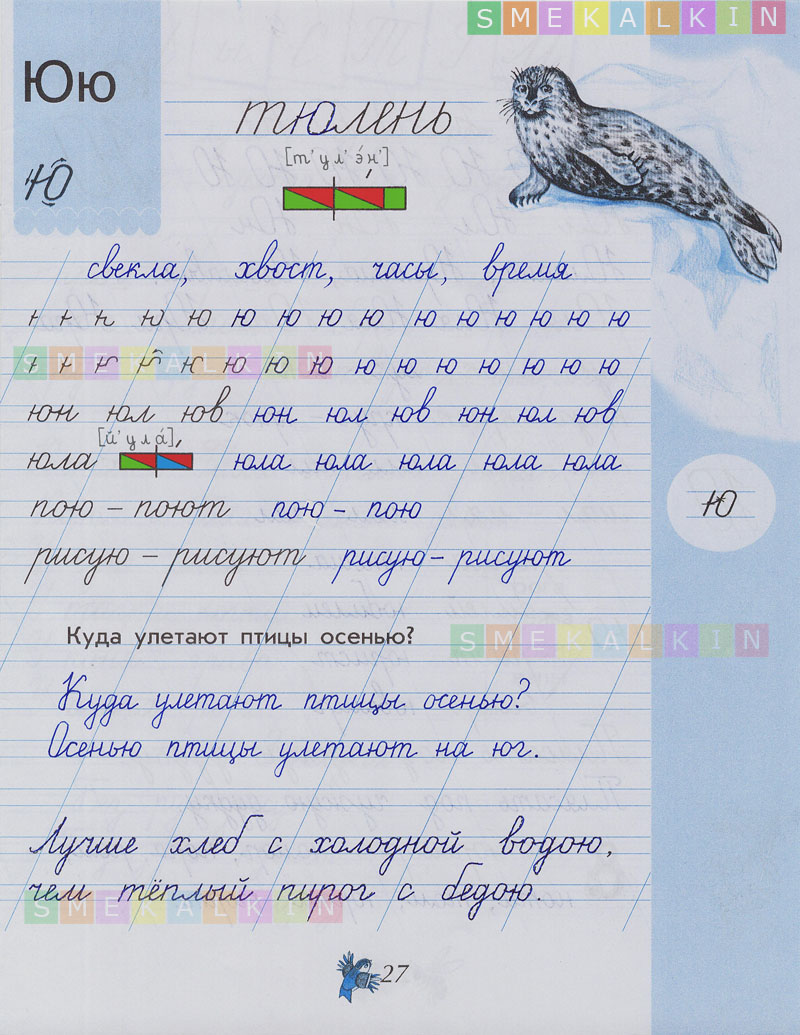 SMEKALKIN
Юю
тюлень
Ю
[т'ул'э́н']
свекла, хвост, часы, время
ю ю ю ю ю ю ю ю ю ю ю ю
SMEKALKIN
ю ю ю ю ю ю ю ю ю ю ю
юн юл юв юн юл юв юн юл юв
[й'ула́]
юла юла юла юла юла юла
Ю
пою – поют пою – пою
рисую – рисуют рисую – рисуют
Куда улетают птицы осенью?
SMEKALKIN
Куда улетают птицы осенью?
Осенью птицы улетают на юг.
Лучше хлеб с холодной водою,
чем тёплый пирог с бедою.
SMEKALKIN
27